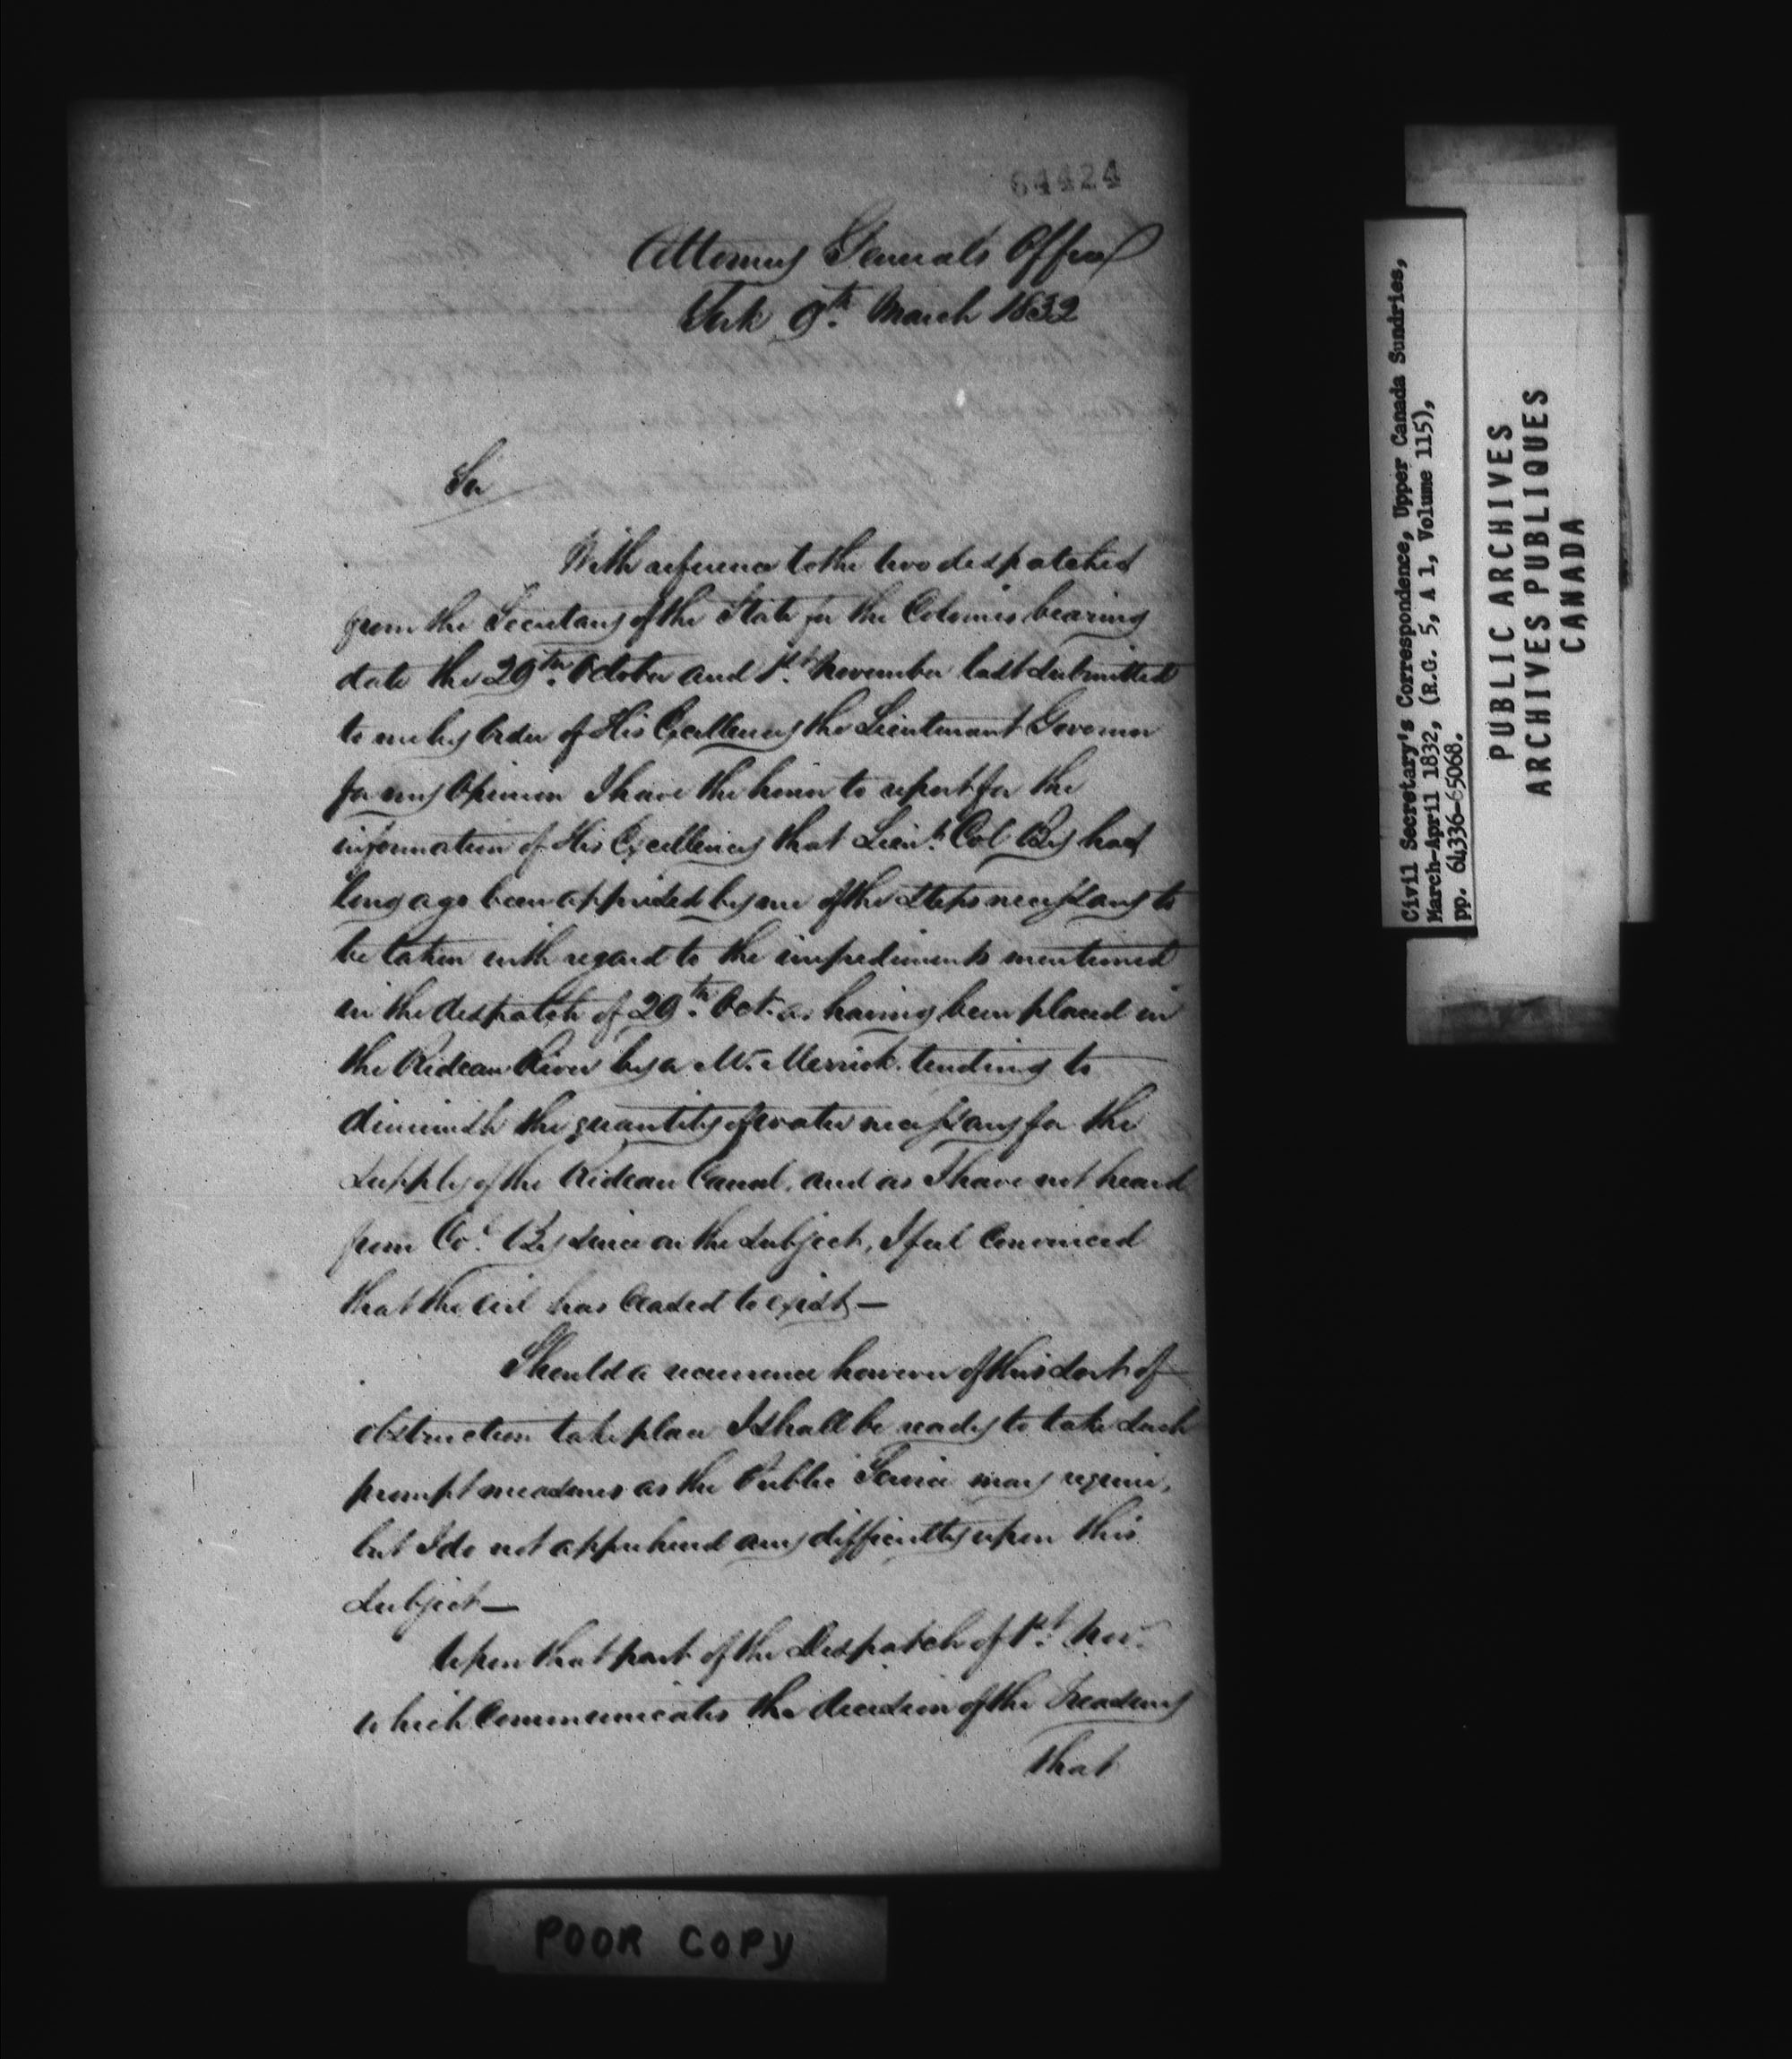 64424
Attorney Generals Office
York 9th. March 1832
Sir
With reference to the two despatches
from the Secretary of the State for the Colonies bearing
date the 29th. October and 1st. November last submitted
to me by Order of His Excellency the Lieutenant Governor
for my Opinion I have the honor to report for the
information of His Excellency that Lieut. Col By had
long ago been apprised by me of the steps necessary to
be taken with regard to the impediments mentioned
in the despatch of 29th. Oct. as having been placed in
the Rideau River by a Mr. Merrick tending to
diminish the quantity of water necessary for the
supply of the Rideau Canal, and as I have not heard
from Col. By since on the subject, I feel Convinced
that the evil has Ceased to exist—
Should a recurrence however of this sort of
obstruction take place I shall be ready to take such
prompt measures as the Public Service may require,
but I do not apprehend any difficulty upon this
subject—
Upon that part of the Despatch of 1st. Nov.
which Communicates the decision of the Treasury
that
POOR COPY
Civil Secretary's Correspondence, Upper Canada Sundries,
March-April 1832, (R.G. 5, A 1, Volume 115),
pp. 64336-65068.
PUBLIC ARCHIVES
ARCHIVES PUBLIQUES
CANADA